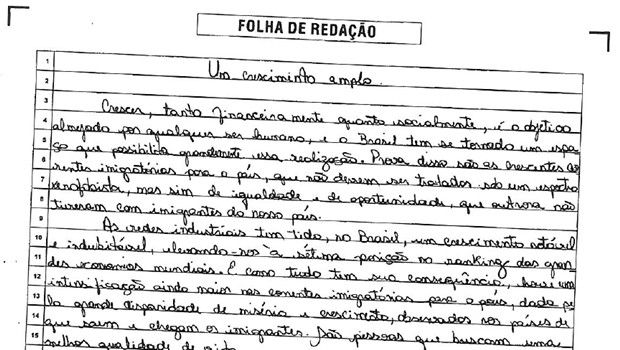 FOLHA DE REDAÇÃO
1 Um crescimento amplo.
2
3 Crescer, tanto financeiramente quanto socialmente, é o objetivo
4 almejado por qualquer ser humano, e o Brasil tem se tornado um espa-
5 ço que possibilita grandemente essa realização. Prova disso são as crescentes cor
6 rentes imigratórias para o país, que não devem ser tratados sob um espectro
7 xenofobista, mas sim de igualdade e de oportunidade, que outrora não
8 tiveram com imigrantes do nosso país.
9 As redes industriais tem tido, no Brasil, um crescimento notável
10 e indubitável, elevando-nos à sétima posição no ranking das gran
11 des economias mundiais. E como tudo tem sua consequência, houve um
12 intensificação ainda maior nas correntes imigratórias para o país, dada pe
13 la grande disparidade de miséria e crescimento, observados nos países de
14 que saem e chegam os imigrantes. São pessoas que buscam uma
15 melhor qualidade de vida